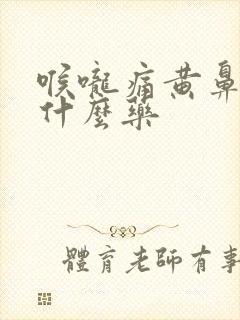 喉嚨痛黃鼻
什麼藥
體育老師有事